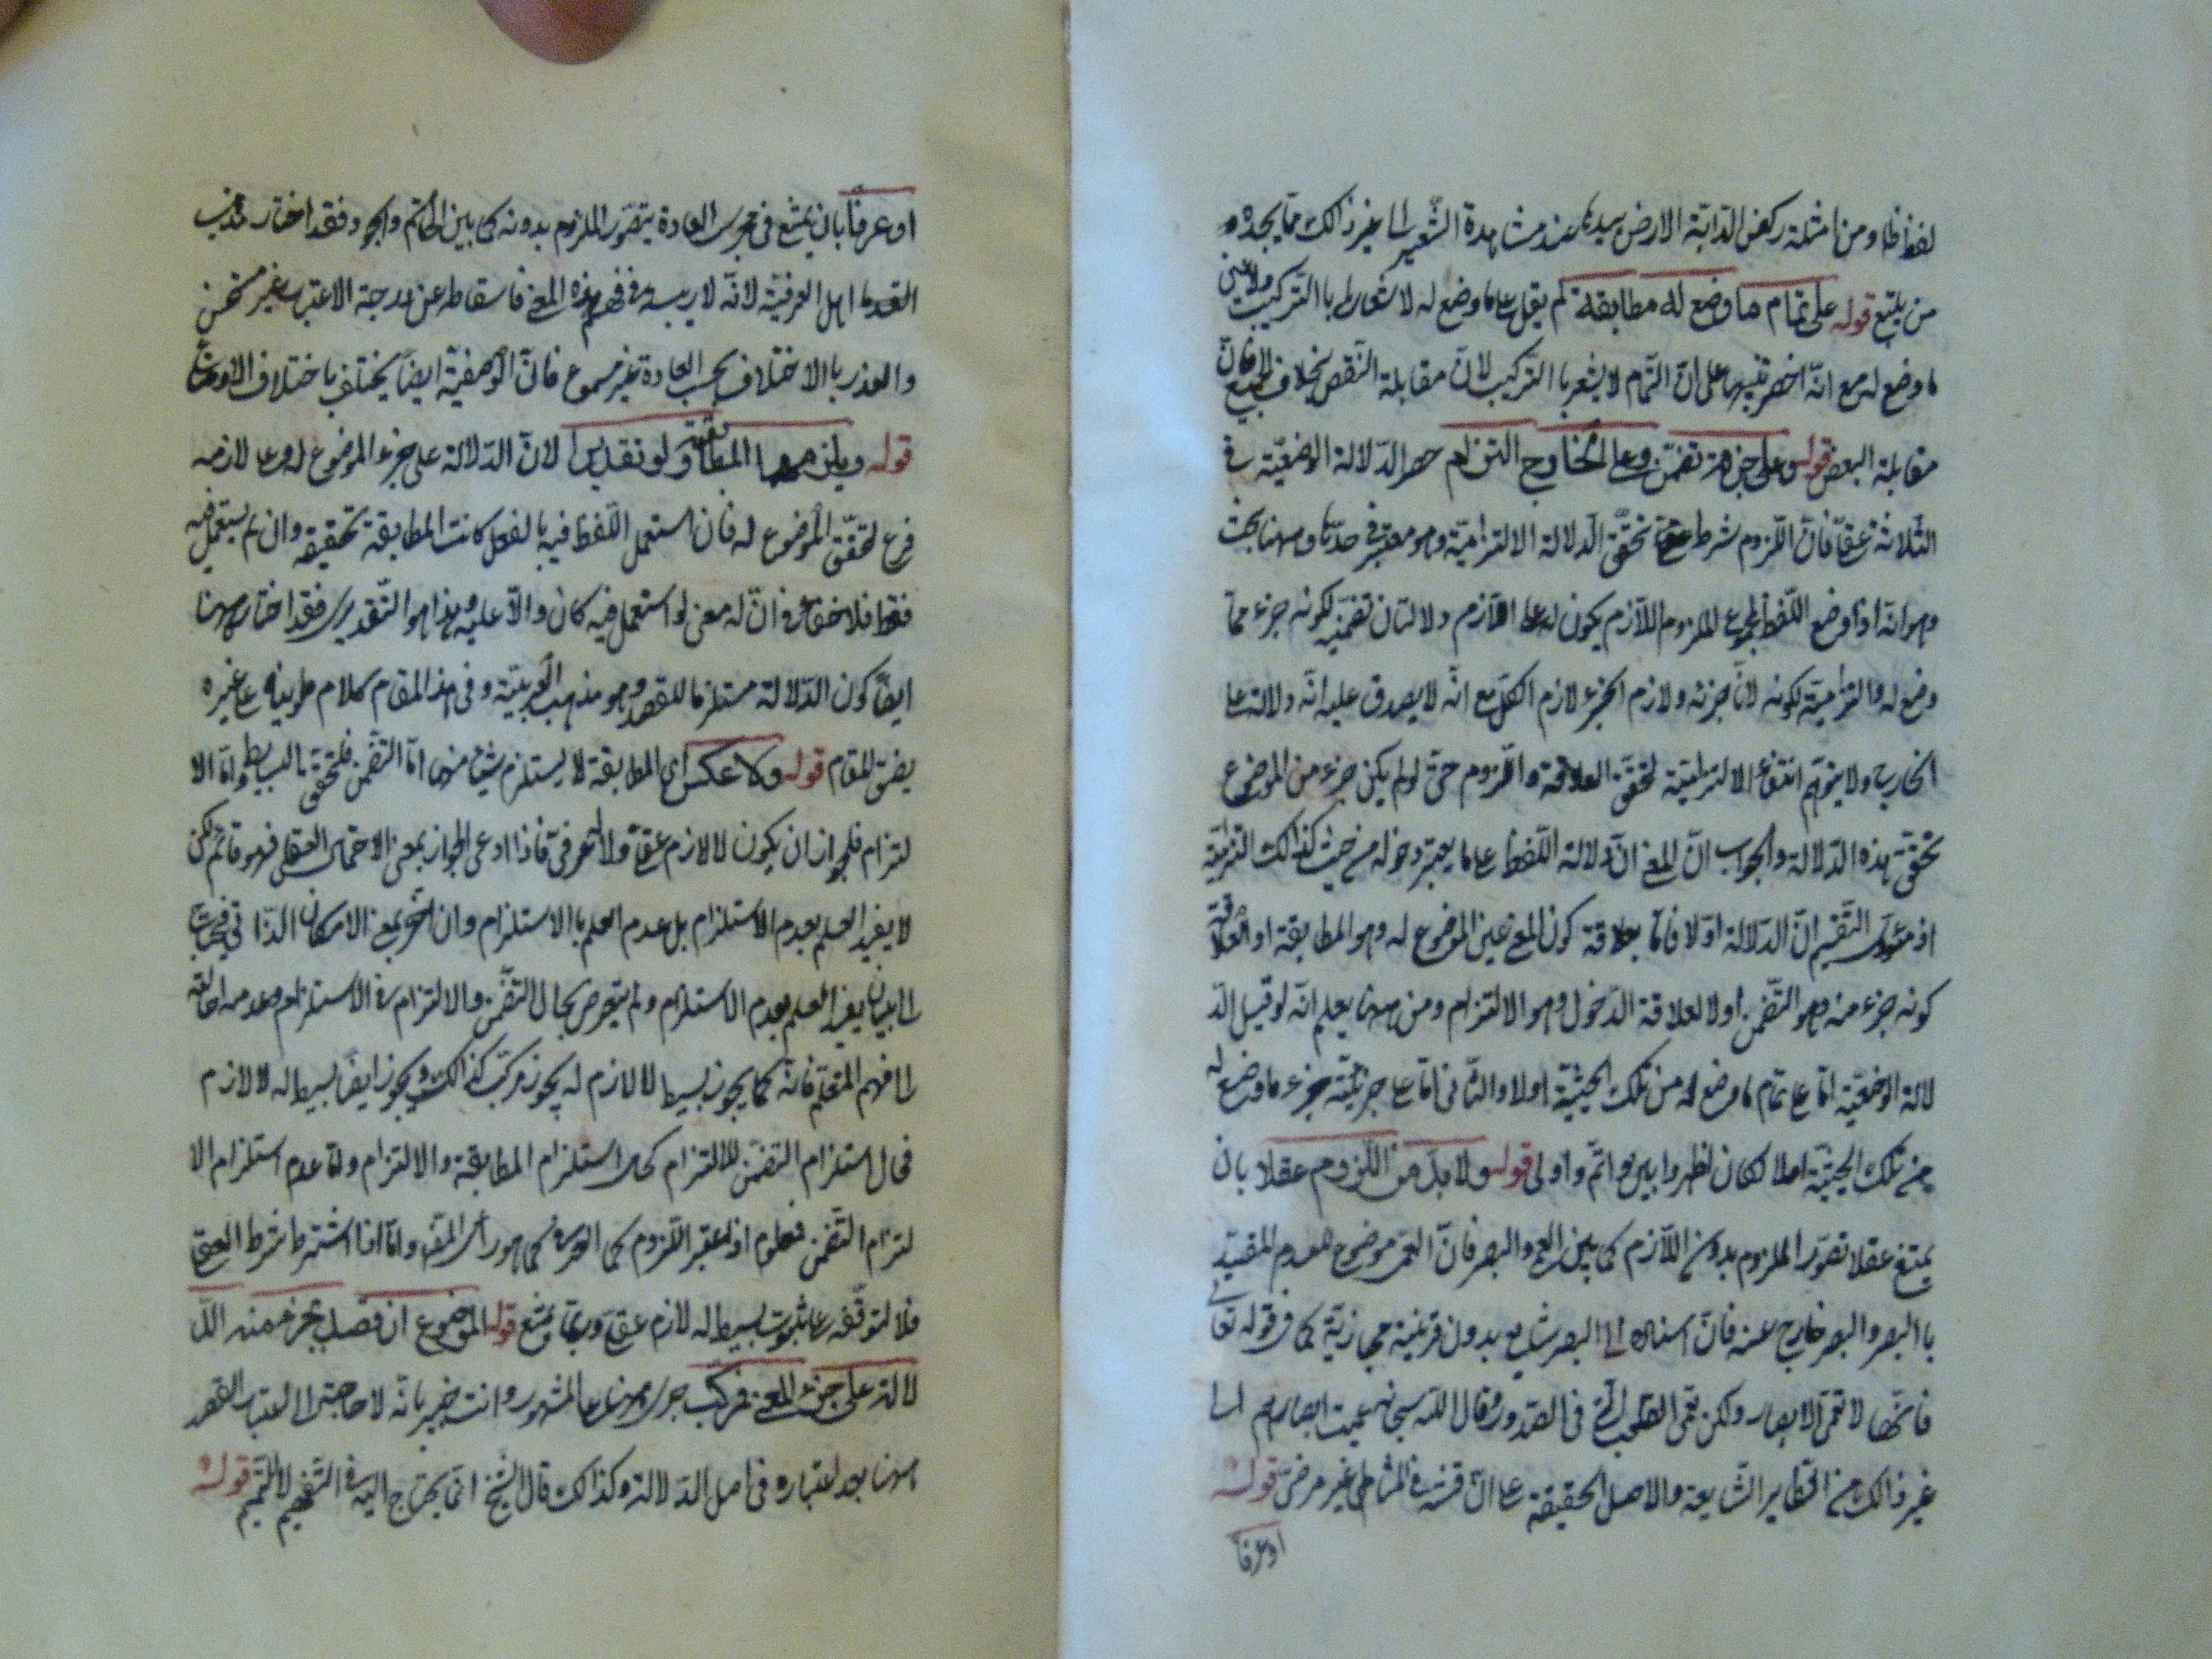 لفظا ومن امثلته ركض الدابّة الارض بيدها عند مشاهدة الشّعير الى غير ذالك ممّا يجده
من يتتبع قوله على تمام ما وضع له مطابقة لم يقل على ما وضع له لاشعاره باالتّركيب
ما وضع له مع انّه اخصر تنبيها على انّ التّمام لا يشعر باالتّركيب لانّ مقابله النّقص بخلاف الجميع فانّ
مقابله البعض قوله وعلى جزءه تضمّن وعلى الخارج التزام حصر الدّلالة الوضعيّة في
الثّلاثة عقلىّ فانّ اللّزوم شرط تحقّق الدّلالة الالتزاميّة وهو معتبر في حدّها وههنا بحث
وهو انّه اذا وضع اللّفظ لمجموع الملزوم واللّازم يكون له على اللّازم دلالتان تضمّنيّة لكونه جزء ممّا
وضع له والتزاميّة لكونه لازم جزئه ولازم الجزء لازم الكلّ مع انّه لا يصدق عليه انّه دلالة على
الخارج ولا يتوهّم انتفاء الالتزاميّة لتحقّق العلاقة واللّزوم حتّى لو لم يكن جزء من الموضوع
تحقّق هذه الدّلالة والجواب انّ المعنى انّ دلالة اللّفظ على ما يعتبر دخوله من حيث كذالك التزاميّة
اذ التّقسيم انّ الدّلالة اوّلا فامّا بعلاقة كون المعنى عين الموضوع له وهو المطابقة او لعلاقة
كونه جزء منه وهو التّضمّن او لا لعلاقة الدّخول وهو الالتزام ومن ههنا يعلم انّه لو قيل الدّ
لالة الوضعيّة امّا على تمام ما وضع له من تلك الحيثيّة اولا والثّانى امّا على جزء ما وضع له
من تلك الحيثيّة اولا لكان اظهر وابين واتمّ واولى قوله ولا بدّ من اللّزوم عقلا بان
يمتنع عقلا تصوّر الملزوم بدون اللّازم كما بين العمى والبصر فانّ العمى موضوع للعدم المقيّد
باالبصر والبصر خارج عنه فانّ اسناده الى البصر شايع بدون قرينة مجازيّة كما في قوله تعالى
فانّها لا تعمى الابصار ولكن تعمى القلوب الّتى في الصّدور وقال الله سبحانه عميت ابصارهم الى
غير ذالك من النّظاير الشّايعة والاصل الحقيقة على انّ المناقشة في المثال غير مرضىّ قوله
او عرفا
او عرفا بان يمتنع في مجرى العادة تصوّر الملزوم بدونه كما بين الحاتم والجود فقد اختار مذهب
القدما اهل العربيّة لانّه لا ريب في فهم هذه المعنى فاسقاطه عن درجة الاعتبار غير مستحسن
والعذر باالاختلاف بحسب العادة غير مسموع فانّ الوضعيّة ايضا يختلف باختلاف الاوضاع
قوله ويلزمهما المطابقة ولو تقديرا لانّ الدّلالة على جزء الموضوع له وعلى لازمه
فرع لتحقّق الموضوع له فان استعمل اللّفظ فيه باالفعل كانت المطابقة تحقيقة وان لم يستعمل فيه
فقط فلا خفاء في انّ له معنى لو استعمل فيه كان دالّا عليه وهذا هو التّقدير فقد اختار ههنا
ايضا كون الدّلالة مستلزما للقصد وهو مذهب العربيّة وفي هذا المقام كلام طويناه على غيره
يضيق المقام قوله ولا عكس اى المطابقة لا يستلزم شيئا منهما امّا التّضمّن فلتحقّق البسايط وامّا الا
لتزام فلجواز ان يكون لا لازم عقلىّ ولا عرفىّ فاذا ادعى الجواز بمعنى الاحتمال العقلى فهو قائم لكن
لا يفيد العلم بعدم الاستلزام بل عدم العلم باالاستلزام وان ادعى بمعنى الامكان الذّاتى فيحتاج
الى بيان يفيد العلم بعدم الاستلزام ولم يتعرض بحال التّضمّن والالتزام في الاستلزام وعدمه احالة
الى فهم المتعلّم فانّه كما يجوز بسيط لا لازم له يجوز مركّب كذالك ويجوز ايضا بسيط له لازم
فحال استلزام التضمّن للالتزام كحال استلزام المطابقة والالتزام وامّا عدم استلزام الا
لتزام التّضمّن فمعلوم اذا اعتبر اللّزوم كما هو رأى المصنّف وامّا اذا اشترط شرط العقلى
فلا لتوقّفه على ثبوت بسيط له لازم عقلى وربّما يمنع قوله الموضوع ان قصد بجزء منه الدّ
لالة على جزء المعنى فمركّب جرى ههنا على المشهور وانت خبير بانّه لا حاجة الى اعتبار القصد
ههنا بعد اعتباره في اصل الدّلالة وكذالك قال الشّيخ انّما يحتاج اليه في التّفهيم لا التّتميم قوله